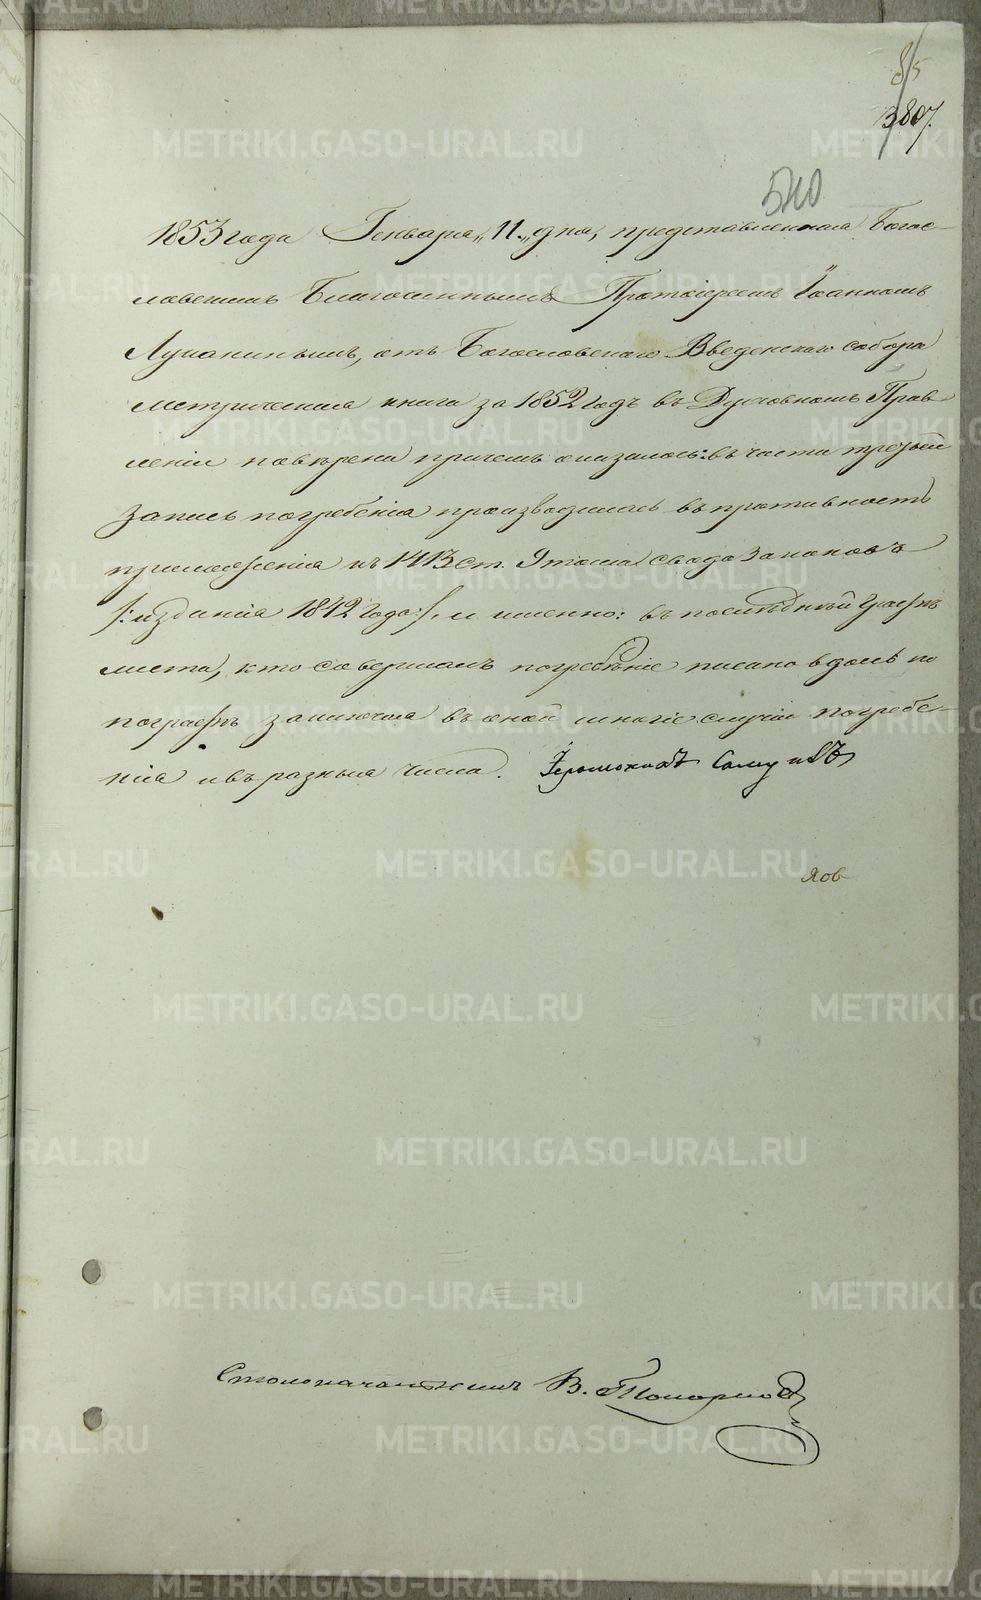 85
3807.
510
1853 года Генваря „11.„ дня, представленная Богос-
ловскимъ Благочиннымъ Протоіереемъ Іоанномъ
Луканинымъ, отъ Богословскаго Введенскаго собора
метрическая книга за 1852 годъ въ Духовномъ Прав-
леніи повѣрена причемъ оказалось: въ части третьей
запись погребенія производилась въ противность
приложенія къ 1413 ст. 9 тома свода законовъ
/: изданія 1842 года :/, и именно: въ послѣдней графѣ
листа, кто совершалъ погребеніе писано вдоль по
по графѣ заключая въ оной многіе случаи погребе-
нія и въ разныя числа. Іеромонахъ Самуилъ
Яов
Столоначальникъ В. Пономаревъ
METRIKI.GASO-URAL.RU